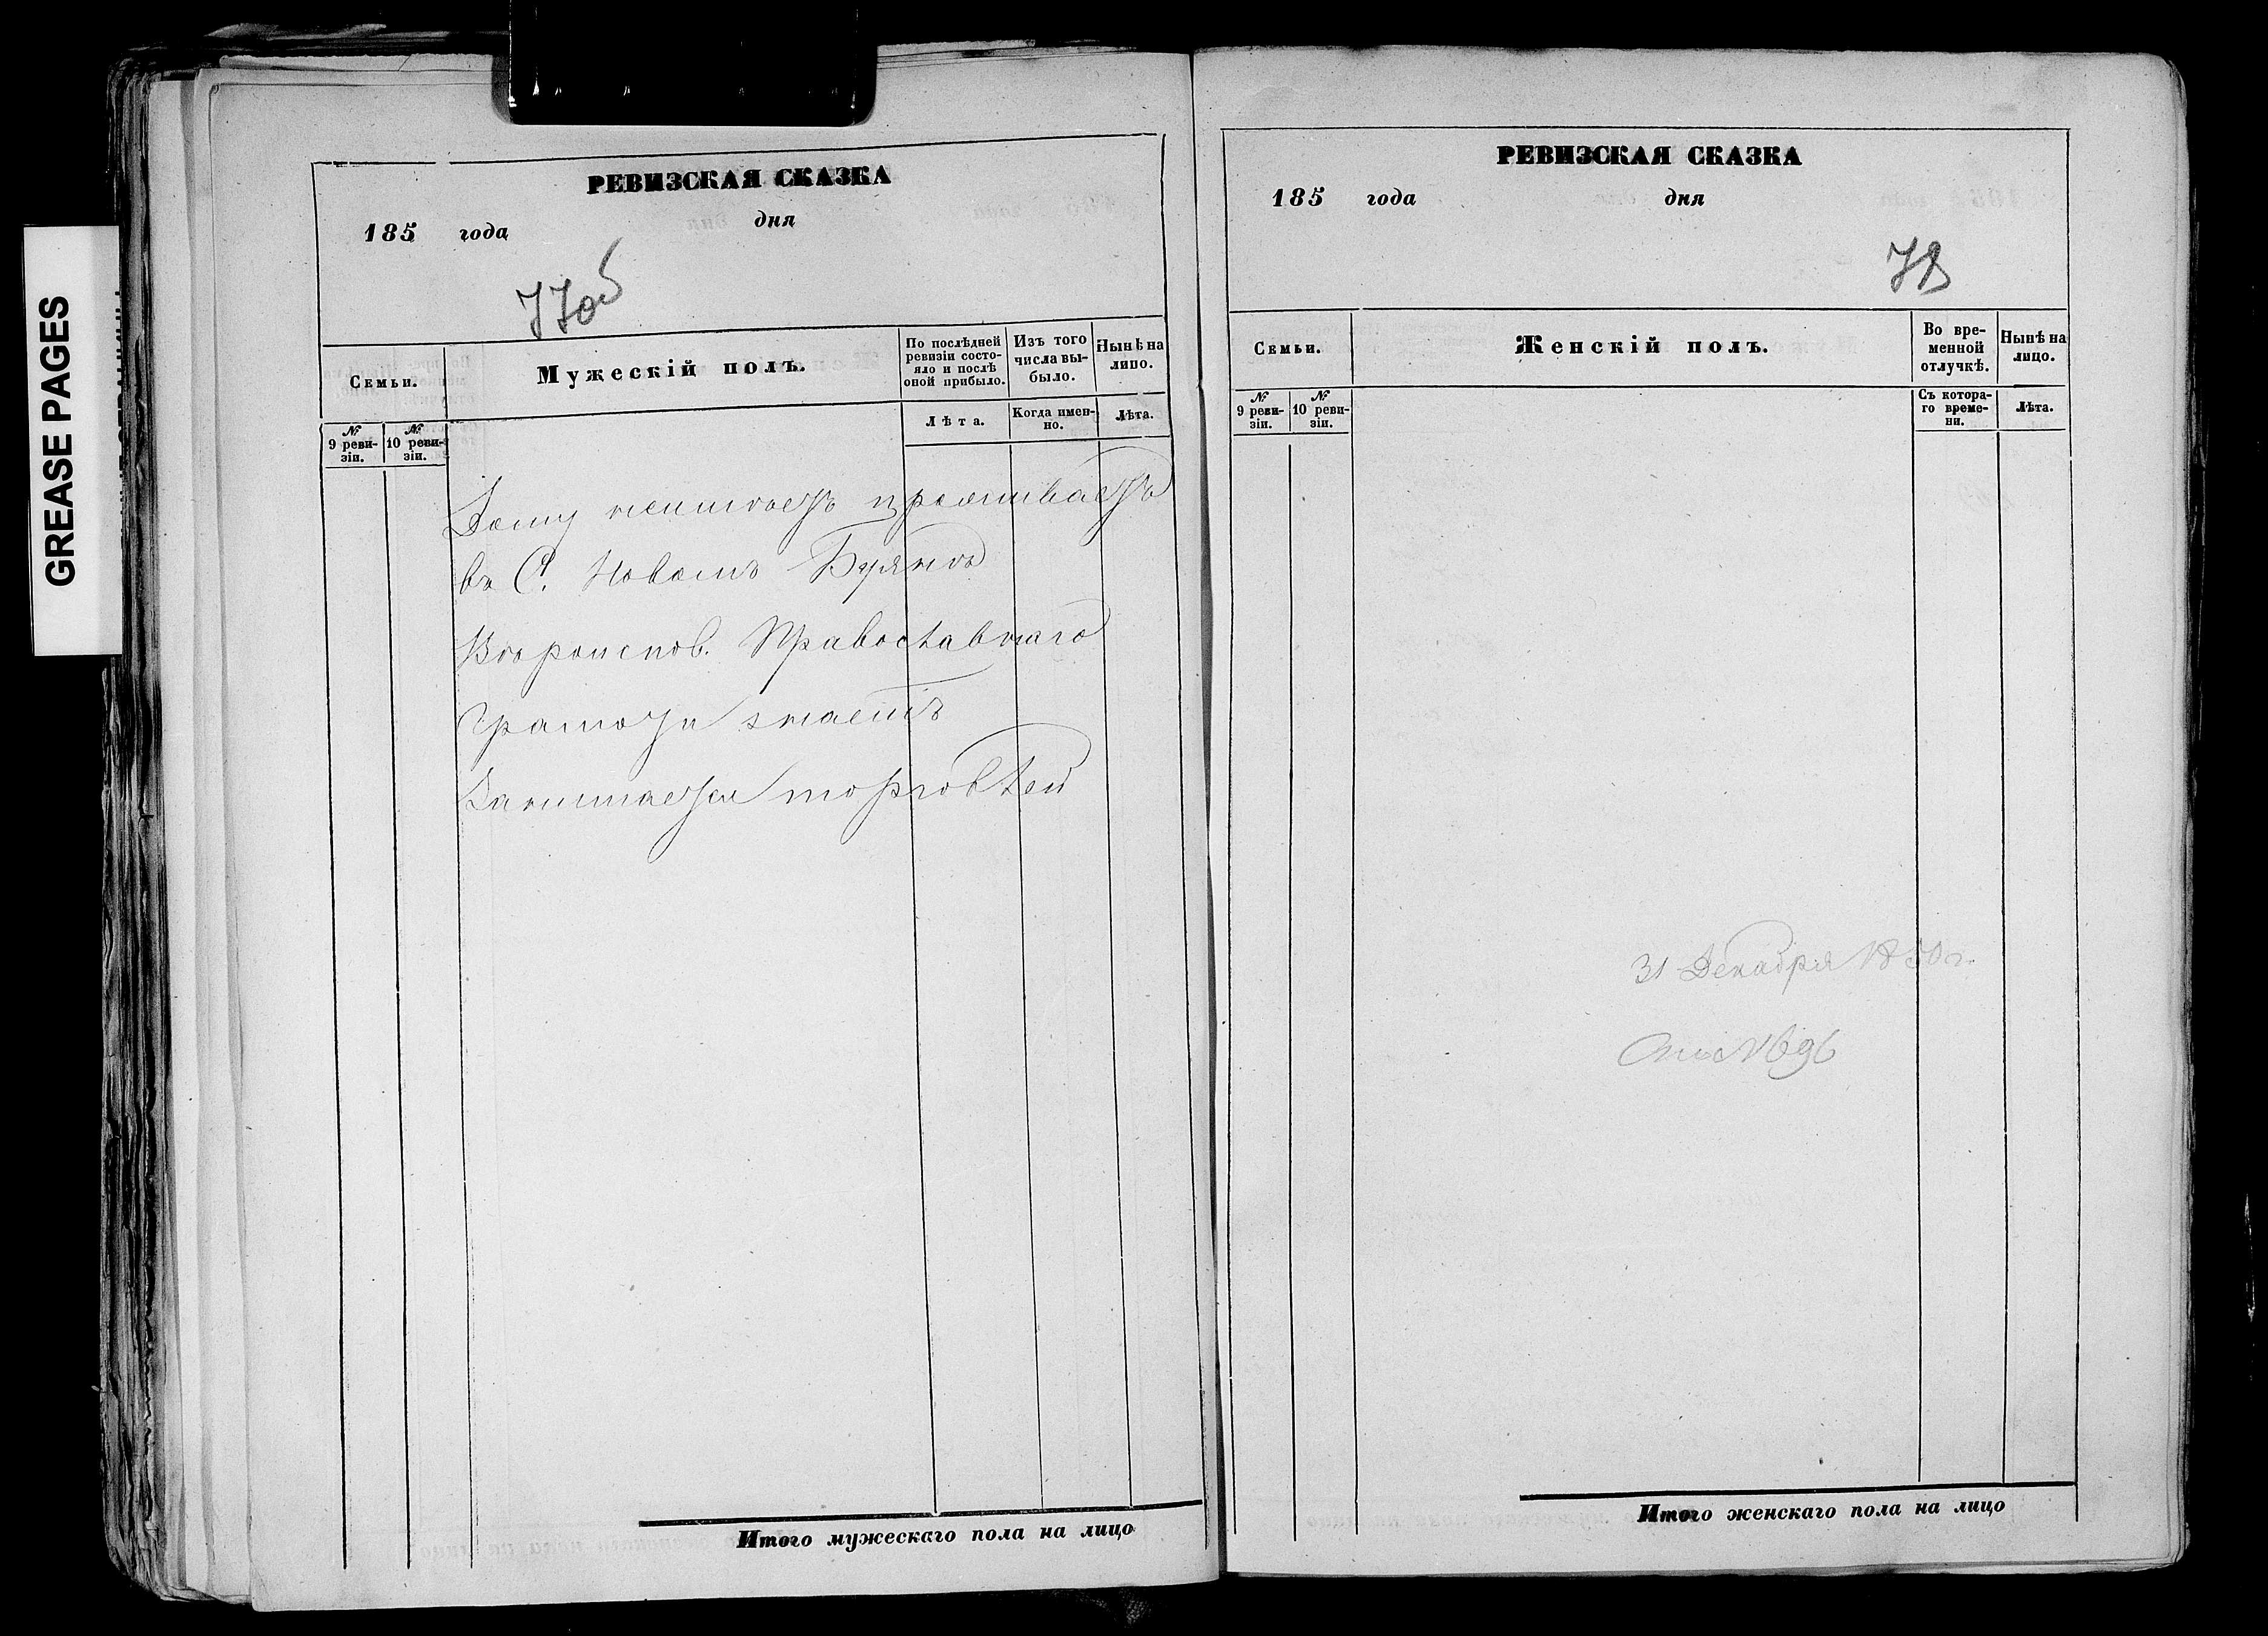 GREASE PAGES
РЕВИЗСКАЯ СКАЗКА
185 года дня
77об
Семьи.
Мужескій полъ.
По послѣдней ревизіи состояло и послѣ оной прибыло.
Изъ того числа выбыло.
Нынѣ на лицо.
№ 9 ревизіи.
№ 10 ревизіи.
Лѣта.
Когда именно.
Лѣта.
проживаетъ
въ С. Новомъ Буянѣ
Вѣроисповѣ. Православнаго
Грамоту знаетъ
Занимается торговлей
Итого мужескаго пола на лицо
РЕВИЗСКАЯ СКАЗКА
185 года дня
78
Семьи.
Женскій полъ.
Во временной отлучкѣ.
Нынѣ на лицо.
№ 9 ревизіи.
№ 10 ревизіи.
Съ котораго времени.
Лѣта.
31 Декабря 1850 г.
№ 696
Итого женскаго пола на лицо